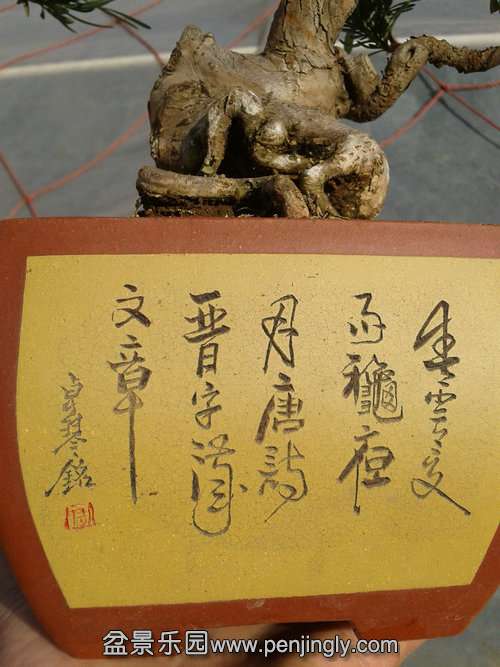 春雲夏
雨龝夜
月唐詩
晋字漢
文章
卓琴銘
盆景乐园www.penjingly.com